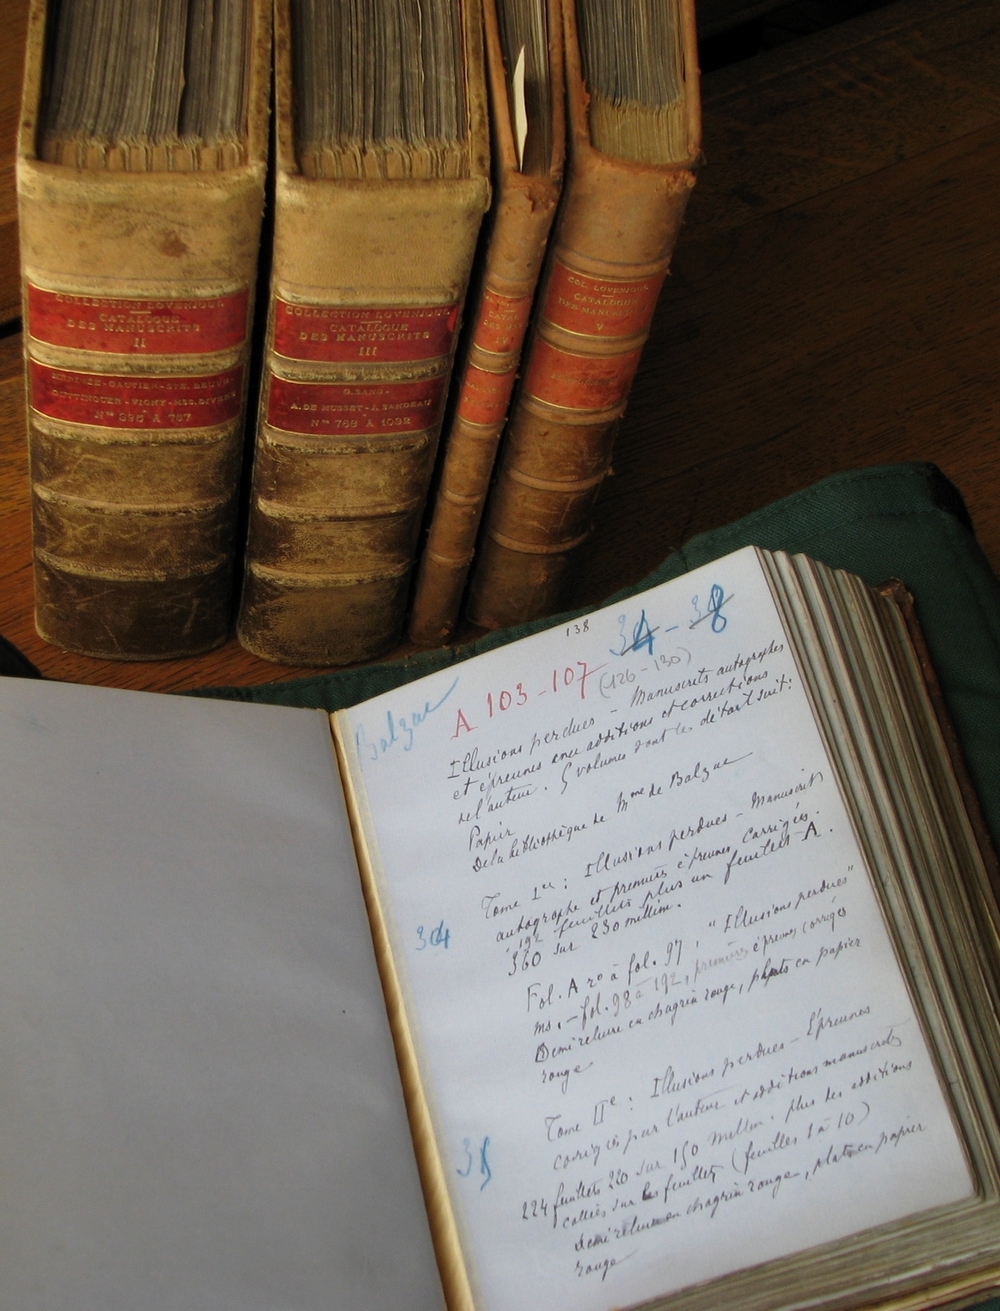 COLLECTION LOVENJOUL
CATALOGUE
DES MANUSCRITS
II
MÉRIMÉE - GAUTIER - STE. BEUVE
GUTTINGUER - VIGNY - MSS. DIVERS
Nos 395 À 767
COLLECTION LOVENJOUL
CATALOGUE
DES MANUSCRITS
III
G. SAND -
A. DE MUSSET - J. SANDEAU
Nos 768 À 1032
IV
COL. LOVENJOUL
CATALOGUE
DES MANUSCRITS
V
138
34 - 38
Balzac
A 103 - 107 (126 - 130)
Illusions perdues - Manuscrits autographes
et épreuves avec additions et corrections
de l'auteur. 5 volumes dont le détail suit:
Papier
De la bibliothèque de Mme de Balzac
Tome Ier : Illusions perdues - Manuscrit
autographe et premières épreuves corrigés.
192 feuillets plus un feuillet A.
360 sur 230 millim.
34
Fol. A ro à fol. 97, "Illusions perdues"
ms. - fol. 98 à 192, premières épreuves corrigées
Demi reliure en chagrin rouge, plats en papier
rouge
Tome IIe : Illusions perdues - Épreuves
corrigées par l'auteur et additions manuscrites
35
224 feuillets 220 sur 150 millim. plus des additions
collées sur les feuillets (feuilles 1 à 10)
Demi reliure en chagrin rouge, plats en papier
rouge